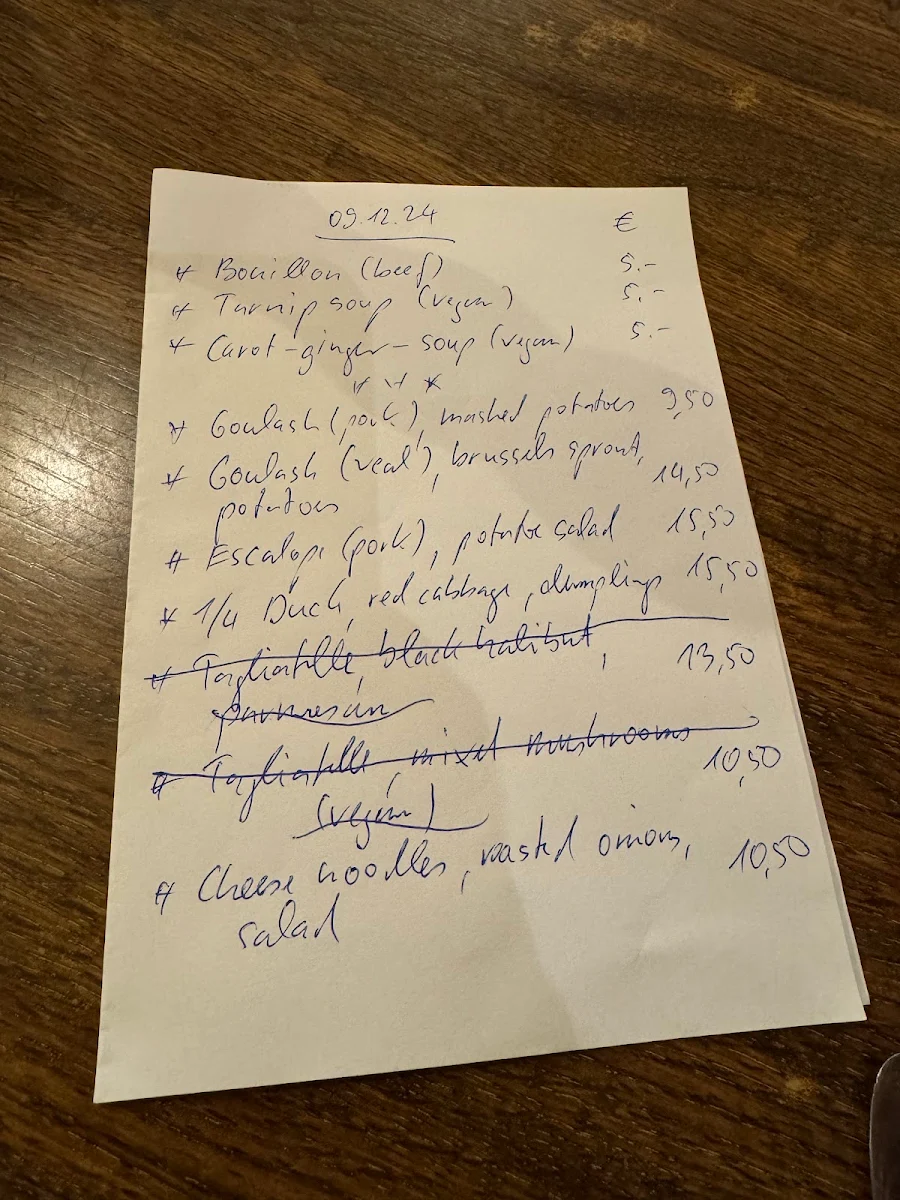 09.12.24 €
* Bouillon (beef) 5.-
* Turnip soup (vegan) 5.-
* Carot-ginger-soup (vegan) 5.-
* * *
* Goulash (pork), mashed potatoes 9,50
* Goulash (veal), brussels sprout, 14,50
potatoes
* Escalope (pork), potatoe salad 15,50
* 1/4 Duck, red cabbage, dumplings 15,50
* Tagliatelle, black halibut, 13,50
parmesan
* Tagliatelle, mixed mushrooms 10,50
(vegan)
* Cheese noodles, roasted onions, 10,50
salad